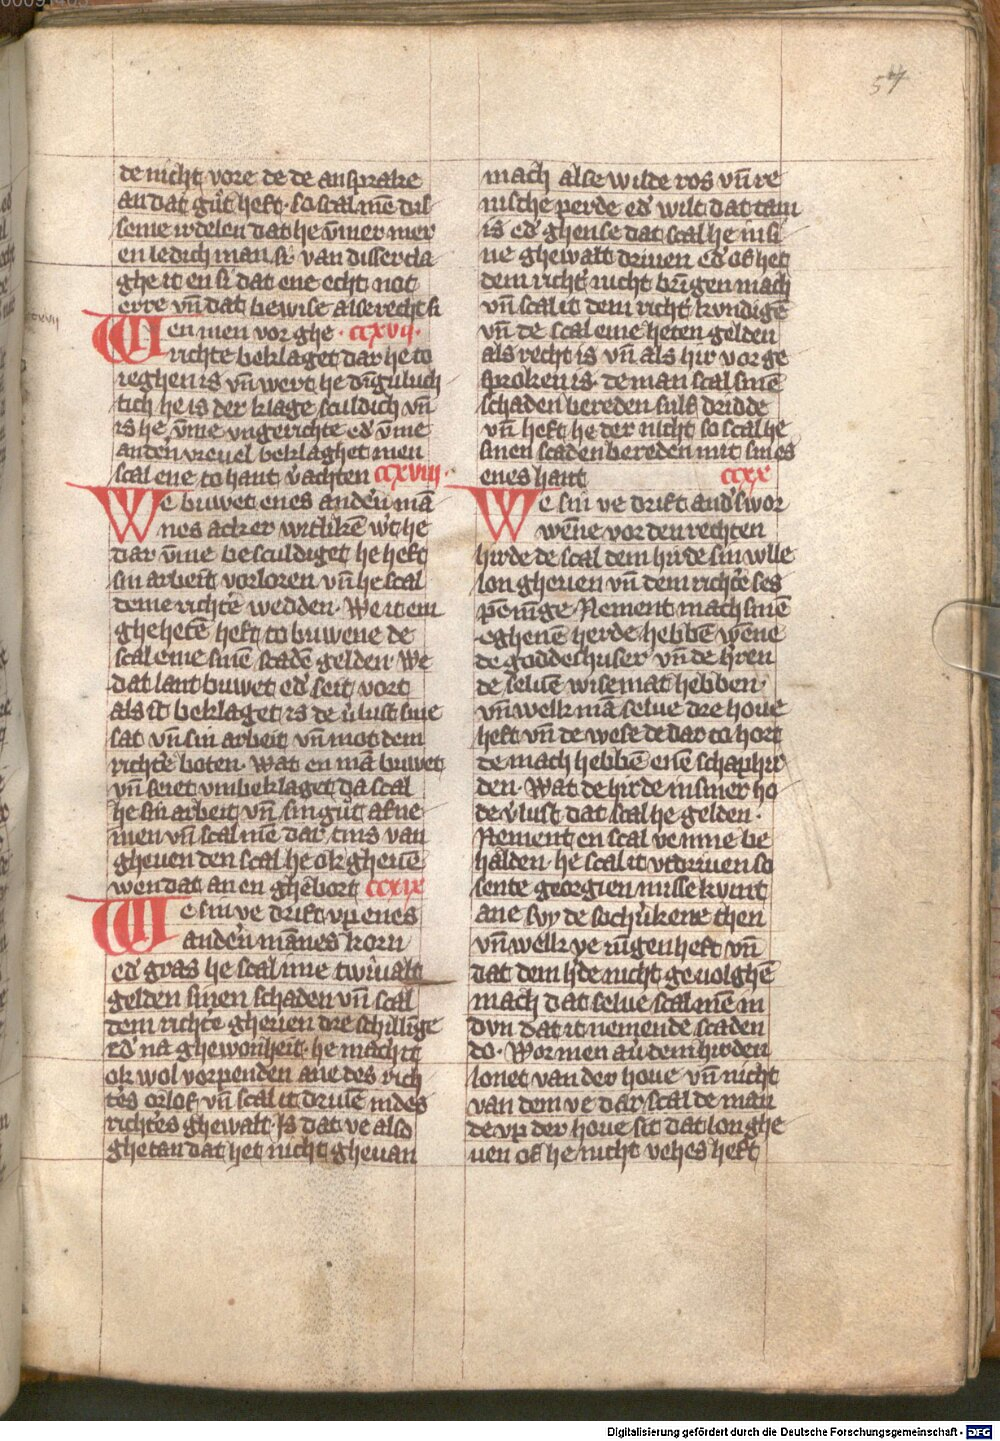 57
de nicht vore de de ansprake
an dat gůt heft · so scal mē dis
seme irdelen dat he v̄mer mer
en ledich man si · van disser cla
ghe it en si dat ene echt not
erre vn̄ dat bewise alse recht si
Wen men vor ghe · ccxvii ·
richte beklaget dar he to
ieghen is vn̄ wert he
tich he is der klage sculdich vn̄
is he v̄me vngerichte ed' v̄me
anden vreuel beklaghet men
scal ene to hant v'achten ccxviii ·
We buwet enes ander'n mā
nes acker witlikē w't he
dar v̄me besculdiget he heft
sin arbeit vorloren vn̄ he scal
deme richte wedden · We it em
ghehetē heft to buwene de
scal eme sinē scadē gelden · We
dat lant buwet ed' seit vort
als it beklaget is de v'lust sine
sat vn̄ sin arbeit vn̄ mot dem
richte boten · Wat en mā buwet
vn̄ seiet vmbeklaget da scal
he sin arbeit vn̄ sin gůt afne
men vn̄ scal mē dar tins van
gheuen den scal he ok gheuē
wen dat an en ghebort ccxix
We sin ve drift vp enes
anden mānes korn
ed' gras he scal ime twiualt
gelden sinen schaden vn̄ scal
dem richte gheuen dre schillīge
Ed' na ghewonheit · he mach it
ok wol vorpenden ane des rich
tes orlof vn̄ scal it driuē in des
richtes ghewalt · Is dat ve also
ghetan dat het nicht ghevan
mach alse wilde ros vn̄ re
nische perde ed' wilt dat tam
is ed' ghense dat scal he in si
ne ghewalt driuen ed' of het
dem richt' nicht br̄gen mach
vn̄ scal it dem richt' kvndigē
vn̄ de scal eme heten gelden
als recht is vn̄ als hir vor ge
sproken is · de man scal sinē
schaden bereden sulf dridde
vn̄ heft he der nicht so scal he
sinen scaden bereden mit sines
enes hant ccxx
We sin ve drift and'swor
wēne vor den rechten
hirde de scal dem hirde sin wlle
lon gheuen vn̄ dem richte ses
pēnīge Nement mach sinē
eghenē herde hebbē wēne
de goddeshuser vn̄ de h'ren
de seluē wisemat hebben ·
vn̄ welk mā selue dre houe
heft vn̄ de wese de dar to hort
de mach hebbē enē schaphir
den · Wat de hirde in siner ho
de v'lust dat scal he gelden ·
Nement en scal ve inne be
halden · he scal it vtdriuen so
sente georgien misse kvmt
ane svy de soch v'kene then
vn̄ welk ve
dat dem h'de nicht ge volghē
mach dat selue scal mē in
dvn dat it nemende scaden
do · Wor men au dem hirden
lonet van der houe vn̄ nicht
van dem ve dar scal de man
de vp der houe sit dat lon ghe
uen of he nicht vehes heft
Digitalisierung gefördert durch die Deutsche Forschungsgemeinschaft - DFG